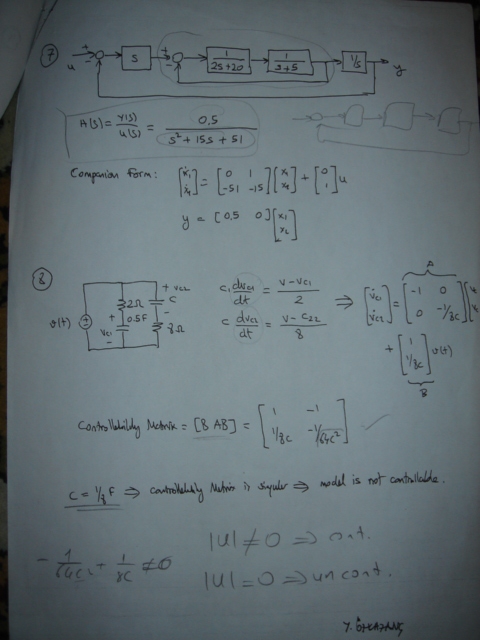 7
u + - S + - 1/(2S+20) 1/(s+5) 1/s y
A(s) = Y(s)/U(s) = 0.5/(s² + 15s + 51)
Companion Form: [ẋ₁ ẋ₂] = [0 1 -51 -15] [x₁ x₂] + [0 1] u
y = [0.5 0] [x₁ x₂]
8
v(t) 2Ω + 0.5F Vc1 - + Vc2 C - 8Ω
C₁ dVc1/dt = (V-Vc1)/2
C dVc2/dt = (V-C22)/8
⇒ [V̇c1 V̇c2] = [-1 0 0 -1/8C] [
A
+ [1 1/8C] v(t)
B
Controllability Matrix = [B AB] = [1 -1 1/8C -1/64C²] ✓
C = 1/8 F ⇒ controllability Matrix is singuler ⇒ model is not controllable.
|U| ≠ 0 ⇒ cont.
- 1/64C² + 1/8C ≠ 0
|U| = 0 ⇒ un cont.